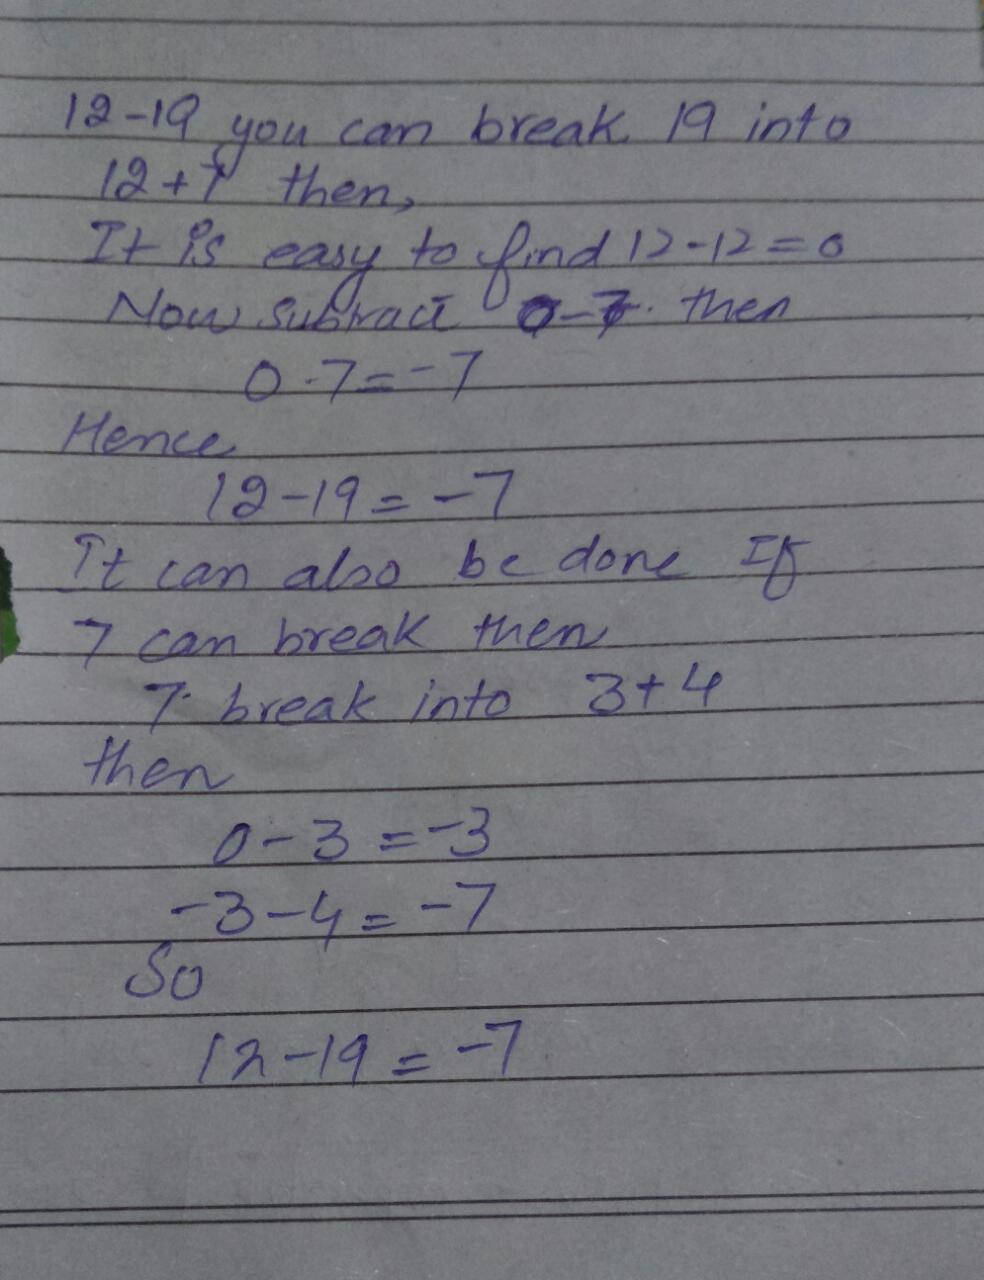 12-19 you can break 19 into
12+7 then,
It is easy to find 12-12=0
Now subtract 0-7. then
0-7=-7
Hence
12-19=-7
It can also be done If
7 can break then
7 break into 3+4
then
0-3=-3
-3-4=-7
So
12-19=-7